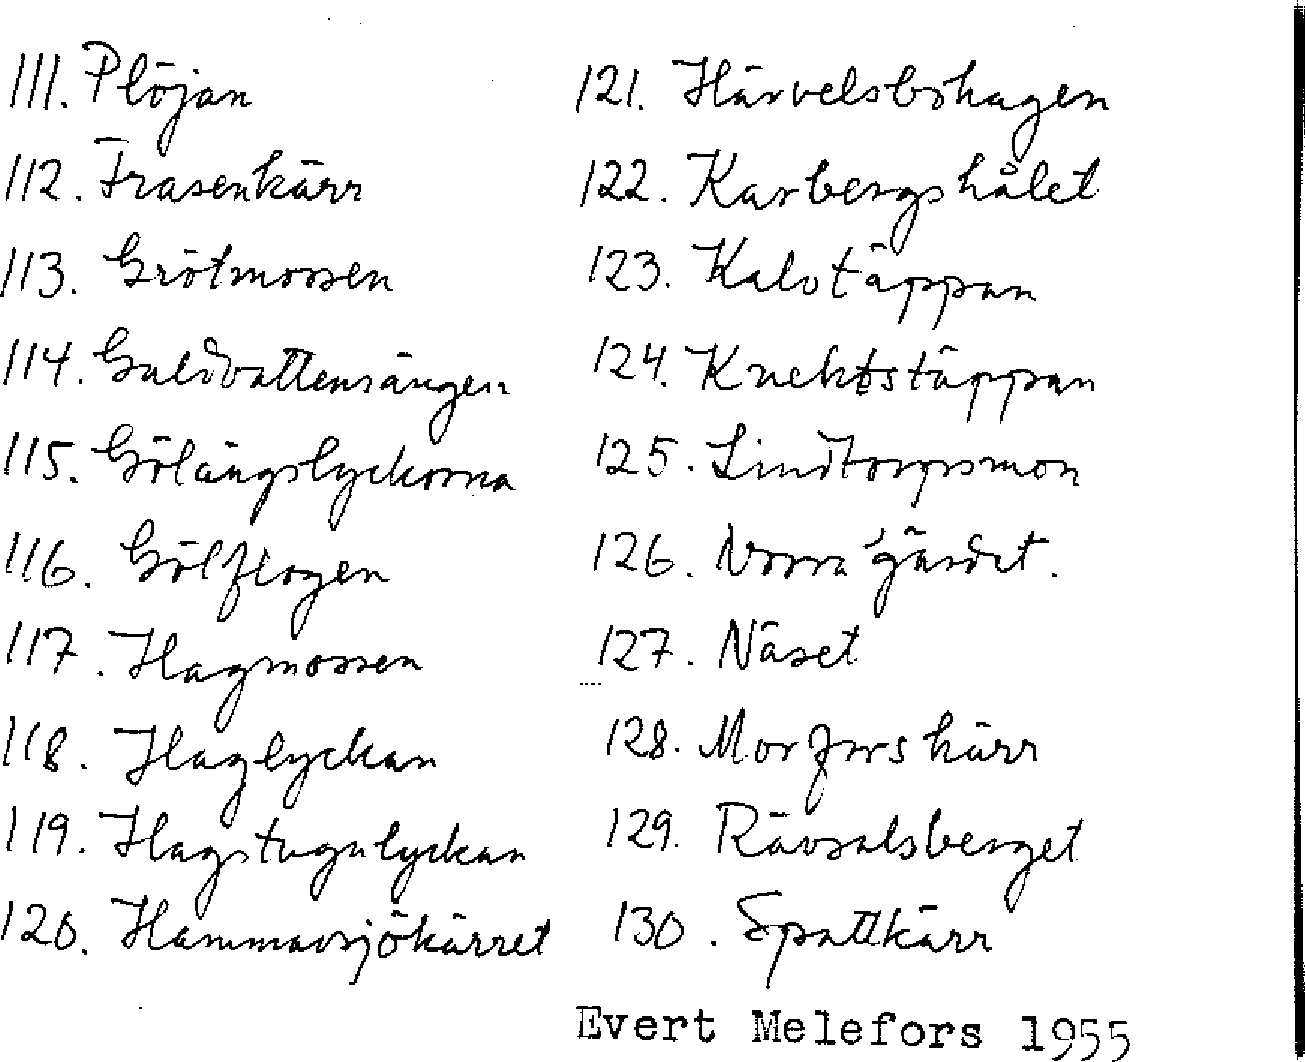 111. Plöjan
112. Frasenkärr
113. Grötmossen
114. Guldvattensängen
115. Gölängslyckorna
116. Gölflogen
117. Hagmossen
118. Haglyckan
119. Hagstugulyckan
120. Hammarsjökärret
121. Härvelsbohagen
122. Karbergshålet
123. Kalvtäppan
124. Knektstäppan
125. Lindtorpsmon
126. Norra gärdet.
127. Näset
128. Morfarskärr
129. Rävsalsberget
130. Spattkärr
Evert Melefors 1955